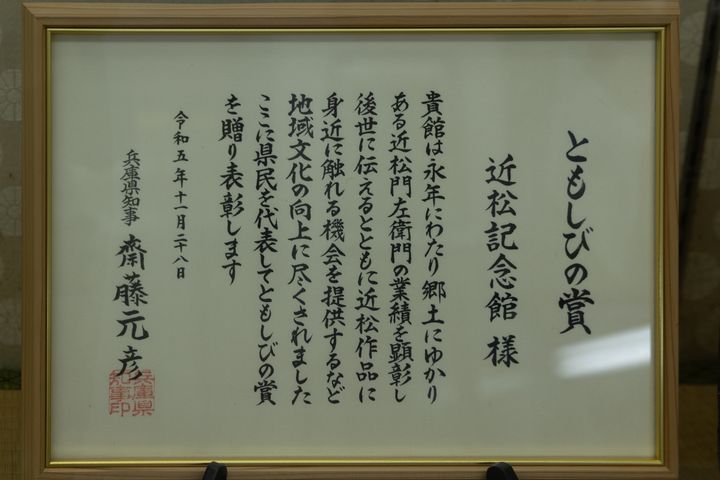 ともしびの賞
近松記念館 様
貴館は永年にわたり郷土にゆかり
ある近松門左衛門の業績を顕彰し
後世に伝えるとともに近松作品に
身近に触れる機会を提供するなど
地域文化の向上に尽くされました
ここに県民を代表してともしびの賞
を贈り表彰します
令和五年十一月二十八日
兵庫県知事 齋藤元彦
兵庫県
知事印